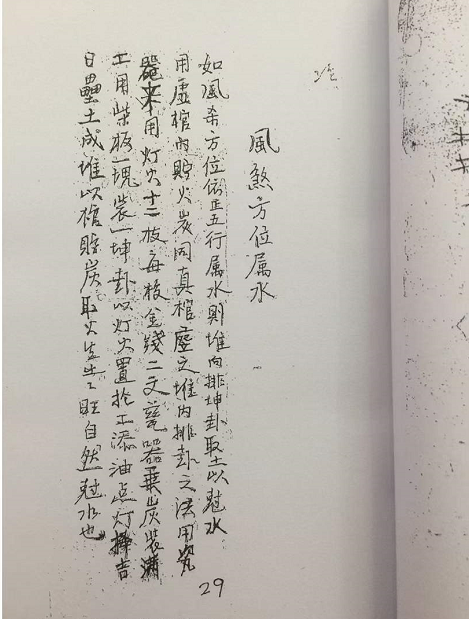 風煞方位属水
如風杀方位依正五行属水則堆向排坤卦取土以尅水
用虛棺內貯火炭同真棺塟之堆內排卦之法用瓷
器来用灯火十二枝每枝金錢二文瓷器乗炭裝滿
工用柴板一塊裝一坤卦以灯火置扵工添油点灯擇吉
日壘土成堆以棺貯炭取火生土之旺自然尅水也
29